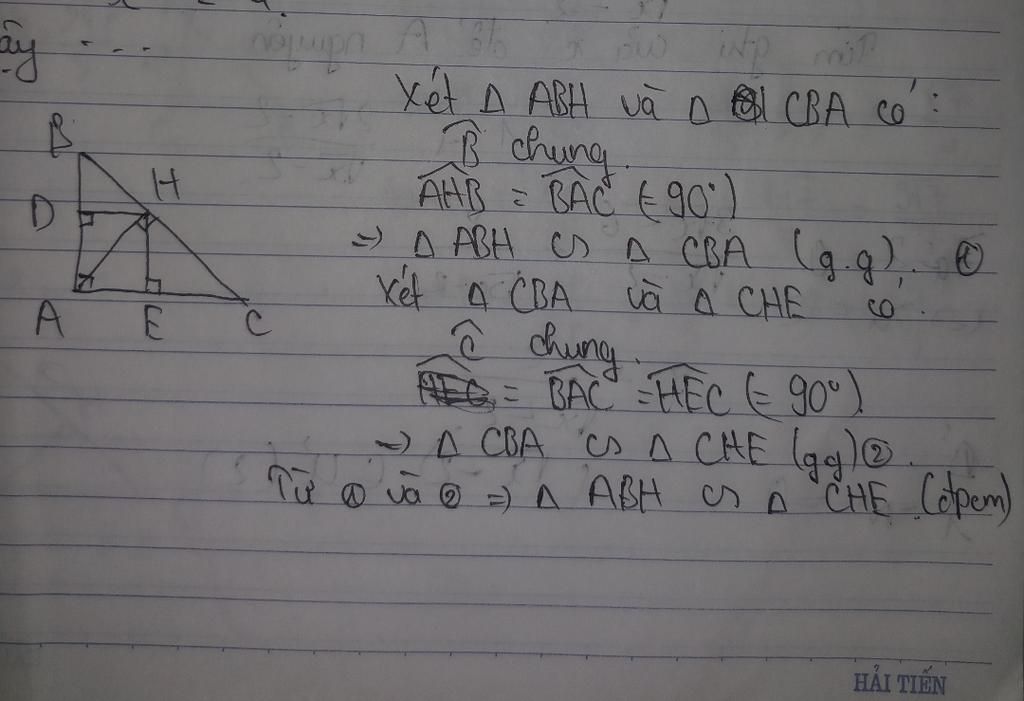 ấy ...
Xét Δ ABH và Δ CBA có:
B̂ chung.
B
H
D
A
E
C
AHB = BAC (= 90°)
=> Δ ABH ∽ Δ CBA (g.g). ①
Xét Δ CBA và Δ CHE có.
Ĉ chung.
= BAC = HEC (= 90°).
=> Δ CBA ∽ Δ CHE (gg) ②.
Từ ① và ② => Δ ABH ∽ Δ CHE (đpcm)
HẢI TIẾN